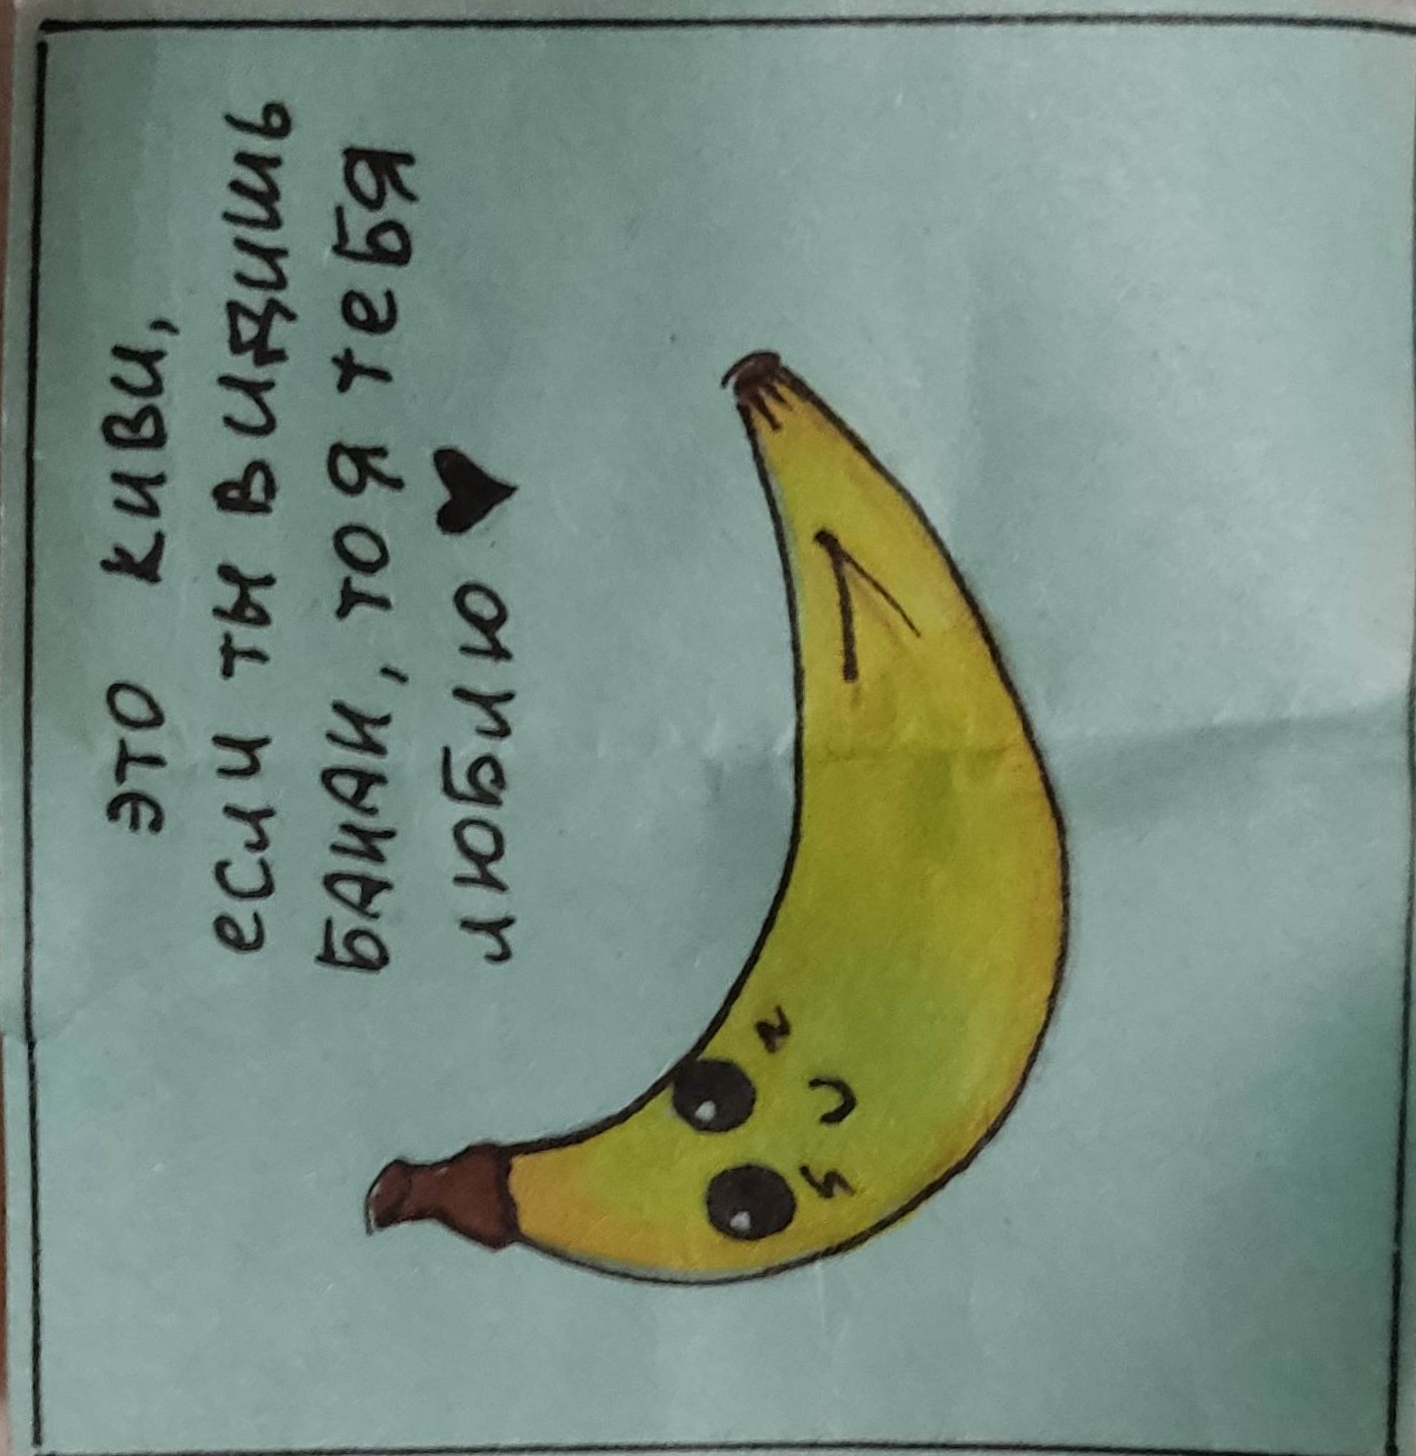 это киви,
если ты видишь
БАНАН, то я тебя
люблю ♥